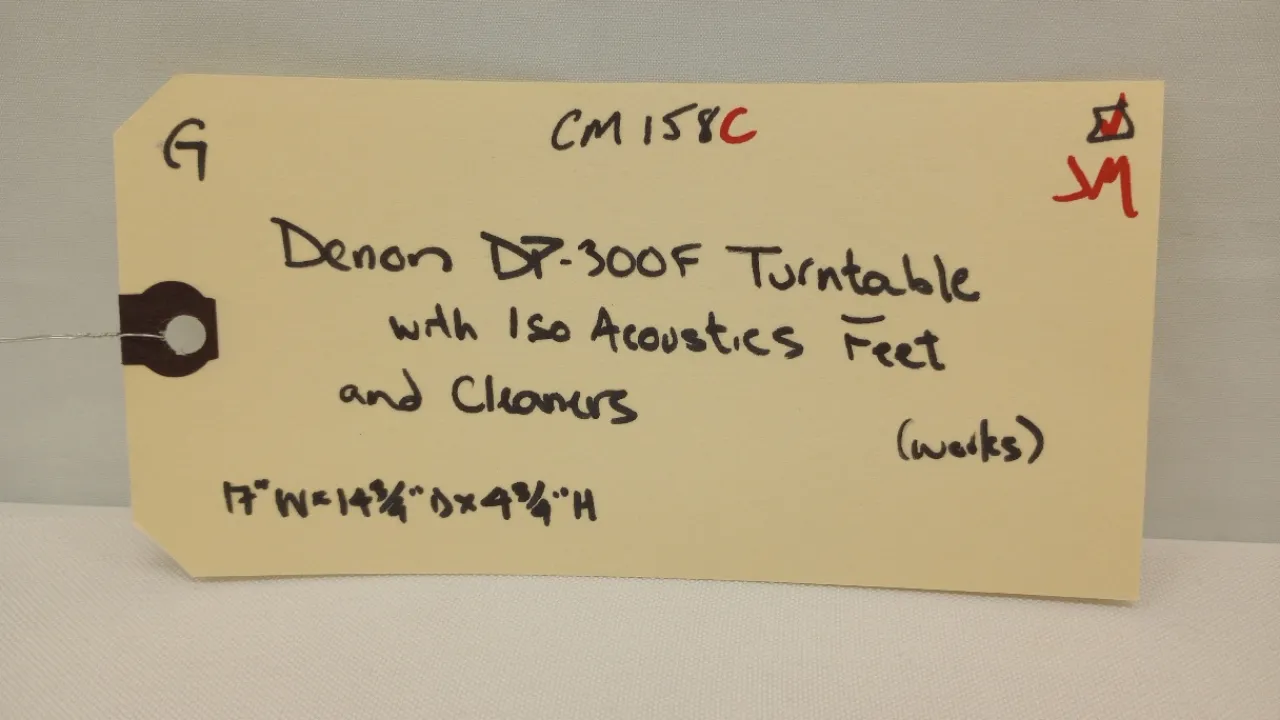 G
CM158C
JM
Denon DP-300F Turntable
with Iso Acoustics Feet
and Cleaners
(works)
17" W x 14 3/4" D x 4 3/4" H